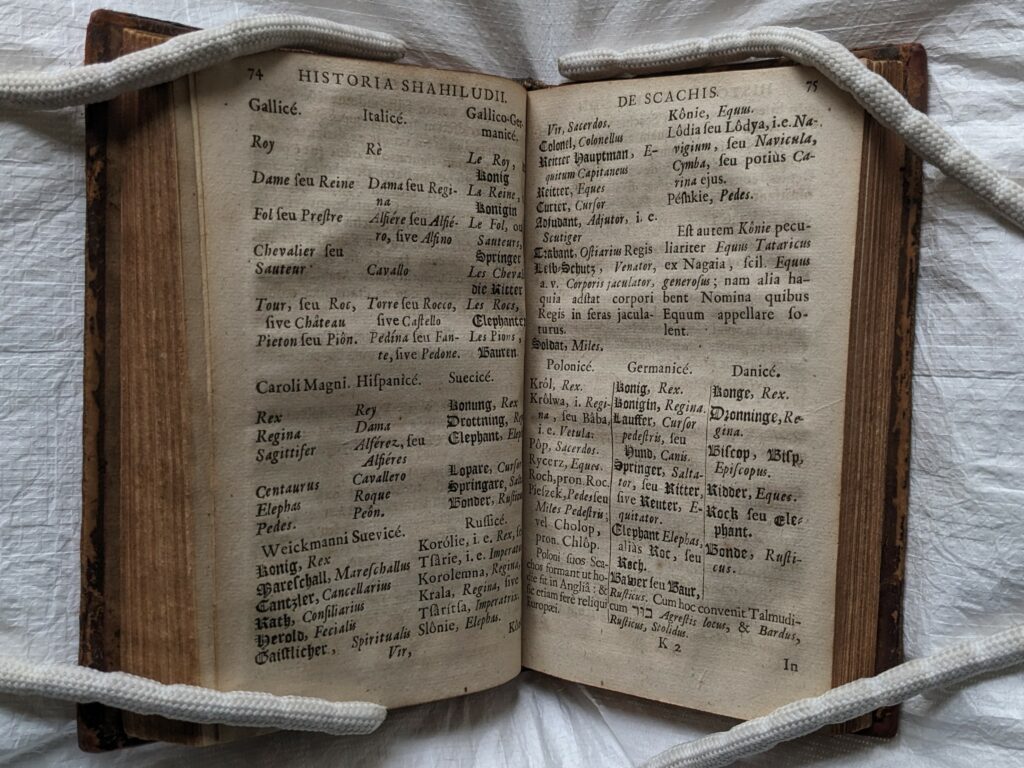 74 HISTORIA SHAHILUDII.
Gallicé.
Roy
Dame ſeu Reine
Fol ſeu Preſtre
Chevalier ſeu
Sauteur
Tour, ſeu Roc,
ſive Château
Pieton ſeu Piôn.
Italicé.
Rè
Dama ſeu Regi-
na
Alfiére ſeu Alfié-
ro, ſive Alfino
Cavallo
Torre ſeu Rocco,
ſive Caſtello
Pedína ſeu Fan-
te, ſive Pedone.
Gallico-Ger-
manicé.
Le Roy,
Konig
La Reine,
Konigin
Le Fol, ou
Sauteurs,
Springer
Les
die Ritter
Les Rocs,
Elephanten
Les Pions,
Bauren.
Caroli Magni.
Rex
Regina
Sagittifer
Centaurus
Elephas
Pedes.
Hiſpanicé.
Rey
Dama
Alférez, ſeu
Alfiéres
Cavallero
Roque
Peôn.
Suecicé.
Konung, Rex
Drottning,
Elephant,
Lopare,
Springare,
Bonder,
Weickmanni Suevicé.
Konig, Rex
Mareſchall, Mareſchallus
Cantzler, Cancellarius
Rath, Conſiliarius
Herold, Fecialis
Gaiſtlicher, Spiritualis
Vir,
Ruſſicé.
Korólie, i. e. Rex,
Tſârie, i. e.
Korolemna, Regina,
Krala, Regina, ſive
Tſârítſa, Imperatrix.
Slônie, Elephas.
DE SCACHIS. 75
Vir, Sacerdos.
Colonel, Colonellus
Reitter Hauptman, E-
quitum Capitaneus
Reitter, Eques
Curier, Curſor
Adjudant, Adjutor, i. e.
Scutiger
Trabant, Oſtiarius Regis
Leib-Schutz, Venator,
a. v. Corporis jaculator,
quia adſtat corpori
Regis in feras jacula-
turus.
Soldat, Miles.
Kônie, Equus.
Lôdia ſeu Lôdya, i.e. Na-
vigium, ſeu Navicula,
Cymba, ſeu potiùs Ca-
rina ejus.
Péſhkie, Pedes.
Eſt autem Kônie pecu-
liariter Equus Tataricus
ex Nagaia, ſcil. Equus
generoſus; nam alia ha-
bent Nomina quibus
Equum appellare ſo-
lent.
Polonicé.
Król, Rex.
Królwa, i. Regi-
na, ſeu Bâba,
i. e. Vetula.
Pôp, Sacerdos.
Rycerz, Eques.
Roch, pron. Roc.
Pieſzek, Pedes ſeu
Miles Pedeſtris;
vel Cholop,
pron. Chlôp.
Poloni ſuos Sca-
chos formant ut ho-
die fit in Angliâ: &
ſic etiam ferè reliqui
Europæi.
Germanicé.
Konig, Rex.
Konigin, Regina.
Lauffer, Curſor
pedeſtris, ſeu
Hund, Canis.
Springer, Salta-
tor, ſeu Ritter,
ſive Reuter, E-
quitator.
Elephant Elephas,
aliàs Roc, ſeu
Roch.
Bawer ſeu Baur,
Ruſticus. Cum hoc convenit Talmudi-
cum בור Agreſtis locus, & Bardus,
Ruſticus, Stolidus.
Danicé.
Konge, Rex.
Dronninge, Re-
gina.
Biſcop, Biſp,
Epiſcopus.
Ridder, Eques.
Rock ſeu Ele-
phant.
Bonde, Ruſti-
cus.
K 2
In